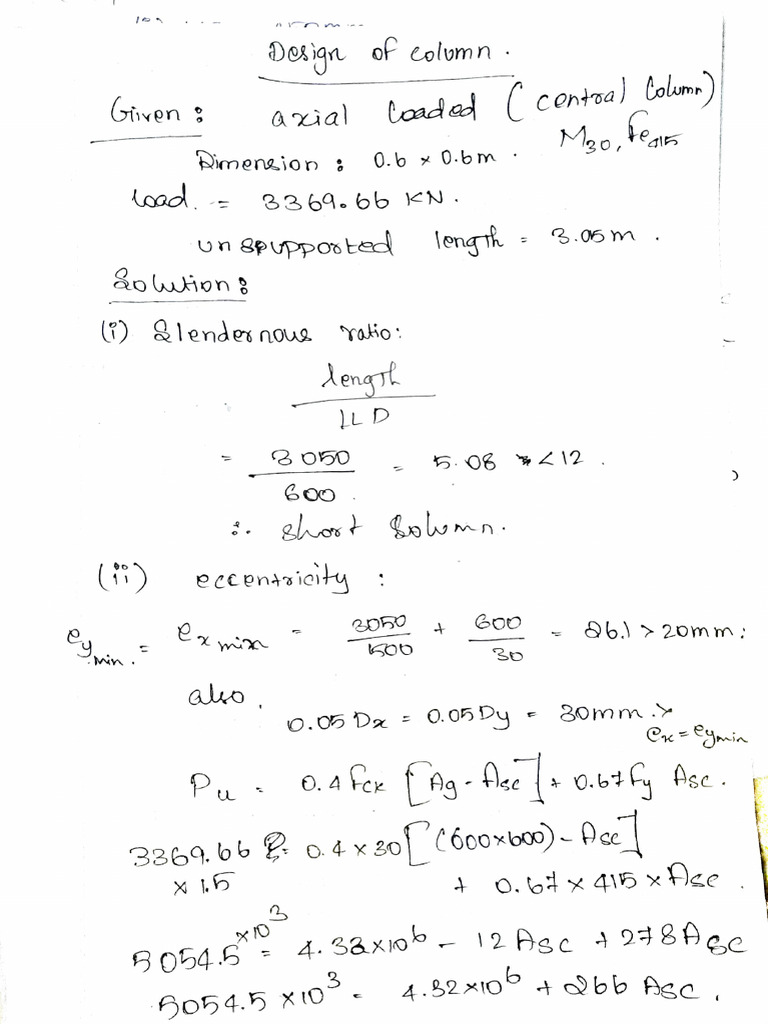 Design of column.
Given : axial loaded (central column)
M30, Fe415
Dimension : 0.6 x 0.6m.
load. = 3369.66 KN.
unspupported length = 3.05m.
Solution :
(i) Slendernous ratio:
length
LLD
= 3050 / 600 = 5.08 < 12.
∴ Short Solumn.
(ii) eccentricity :
ey min. = ex min = 3050 / 1500 + 600 / 30 = 26.1 > 20mm:
also, 0.05 Dx = 0.05 Dy = 30mm >
ex = ey min
Pu = 0.4 Fck [Ag - Asc] + 0.67 fy Asc.
3369.66 x 1.5 = 0.4 x 30 [(600x600) - Asc]
+ 0.67 x 415 x Asc.
5054.5 x10³ = 4.32x10⁶ - 12 Asc + 278 Asc
5054.5 x10³ = 4.32x10⁶ + 266 Asc.